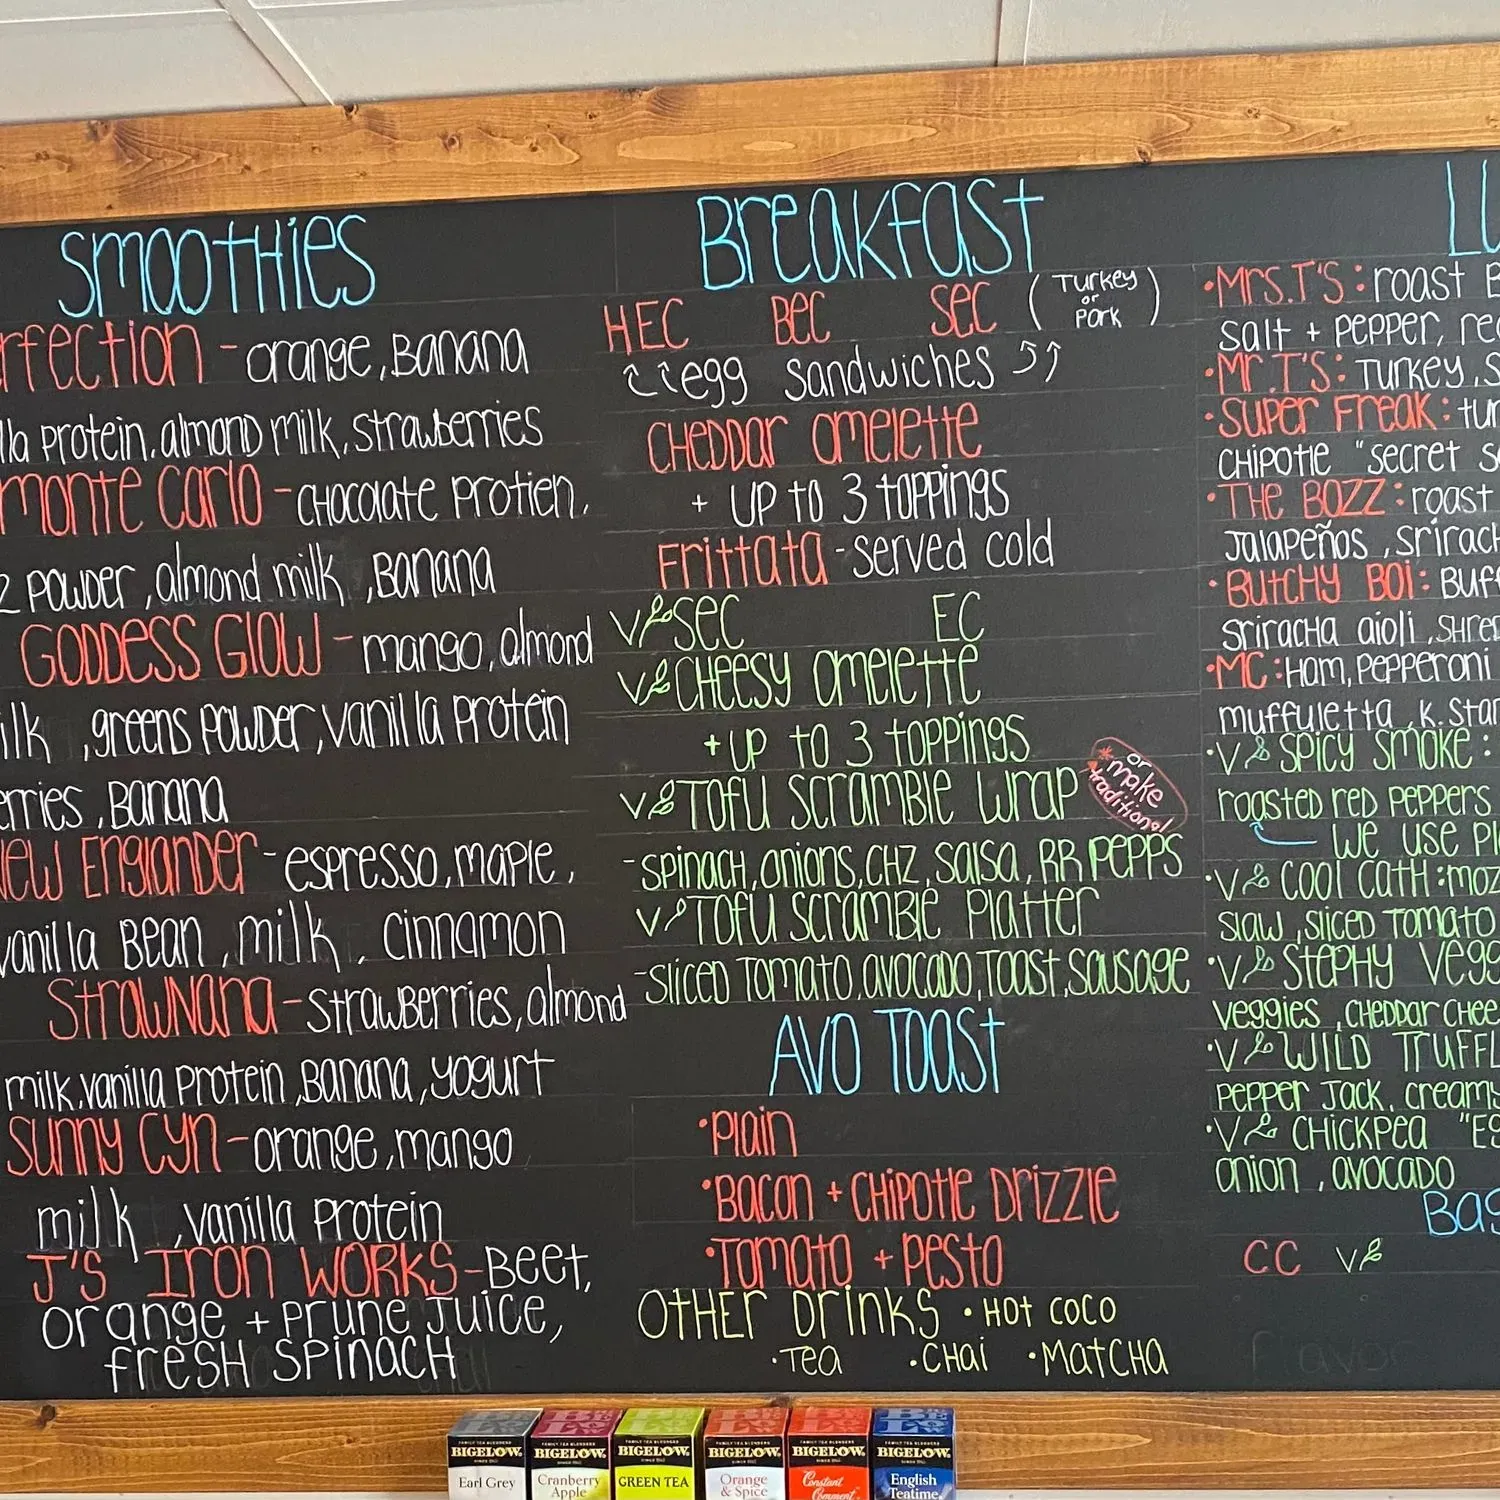 SMOOTHIES
rfection - orange, Banana
lla protein, almond milk, strawberries
monte Carlo - chocolate protien,
2 powder, almond milk, Banana
GODDESS GLOW - mango, almond
ilk , greens powder, vanilla protein
erries, Banana
New Englander - espresso, maple,
vanilla Bean, milk, cinnamon
StrawNana - strawberries, almond
milk, vanilla protein, Banana, yogurt
Sunny Cyn - orange, mango
milk , vanilla protein
J'S Iron Works - Beet,
orange + prune juice,
fresh spinach
Breakfast
HEC BEC SEC (Turkey or Pork)
egg sandwiches
CHEDDAR omelette
+ UP to 3 toppings
Frittata - served cold
V SEC EC
V CHEESY omelette
+ UP to 3 toppings
V TOFU SCRAMBLE Wrap
*or make traditional
- spinach, onions, CHZ, salsa, RR PEPPS
V TOFU SCRAMBLE Platter
- sliced tomato, avocado, toast, sausage
AVO TOAST
• Plain
• Bacon + CHIPOTLE DRIZZLE
• Tomato + pesto
OTHER DRINKS • HOT COCO
• Tea • CHai • MatCHa
LU
• Mrs. T's: roast B
salt + pepper, re
• Mr. T's: Turkey, S
• Super Freak: tur
CHIPOTLE "secret s
• THE BOZZ: roast
Jalapeños, srirach
• BUTCHY BOI: Buff
sriracha aioli, shre
• MC: Ham, pepperoni
muffuletta, k. star
• V SPICY SMOKE:
roasted red peppers
We use pl
• V COOL CATH: moz
slaw, sliced tomato
• V STEPHY Vegg
veggies, CHEDDAR CHEE
• V WILD TRUFFL
pepper jack, creamy
• V CHICKPEA "Eg
onion, avocado
Bag
CC V
flavor
BIGELOW
Earl Grey
BIGELOW
Cranberry
Apple
BIGELOW
GREEN TEA
BIGELOW
Orange
& Spice
BIGELOW
Constant
Comment
BIGELOW
English
Teatime